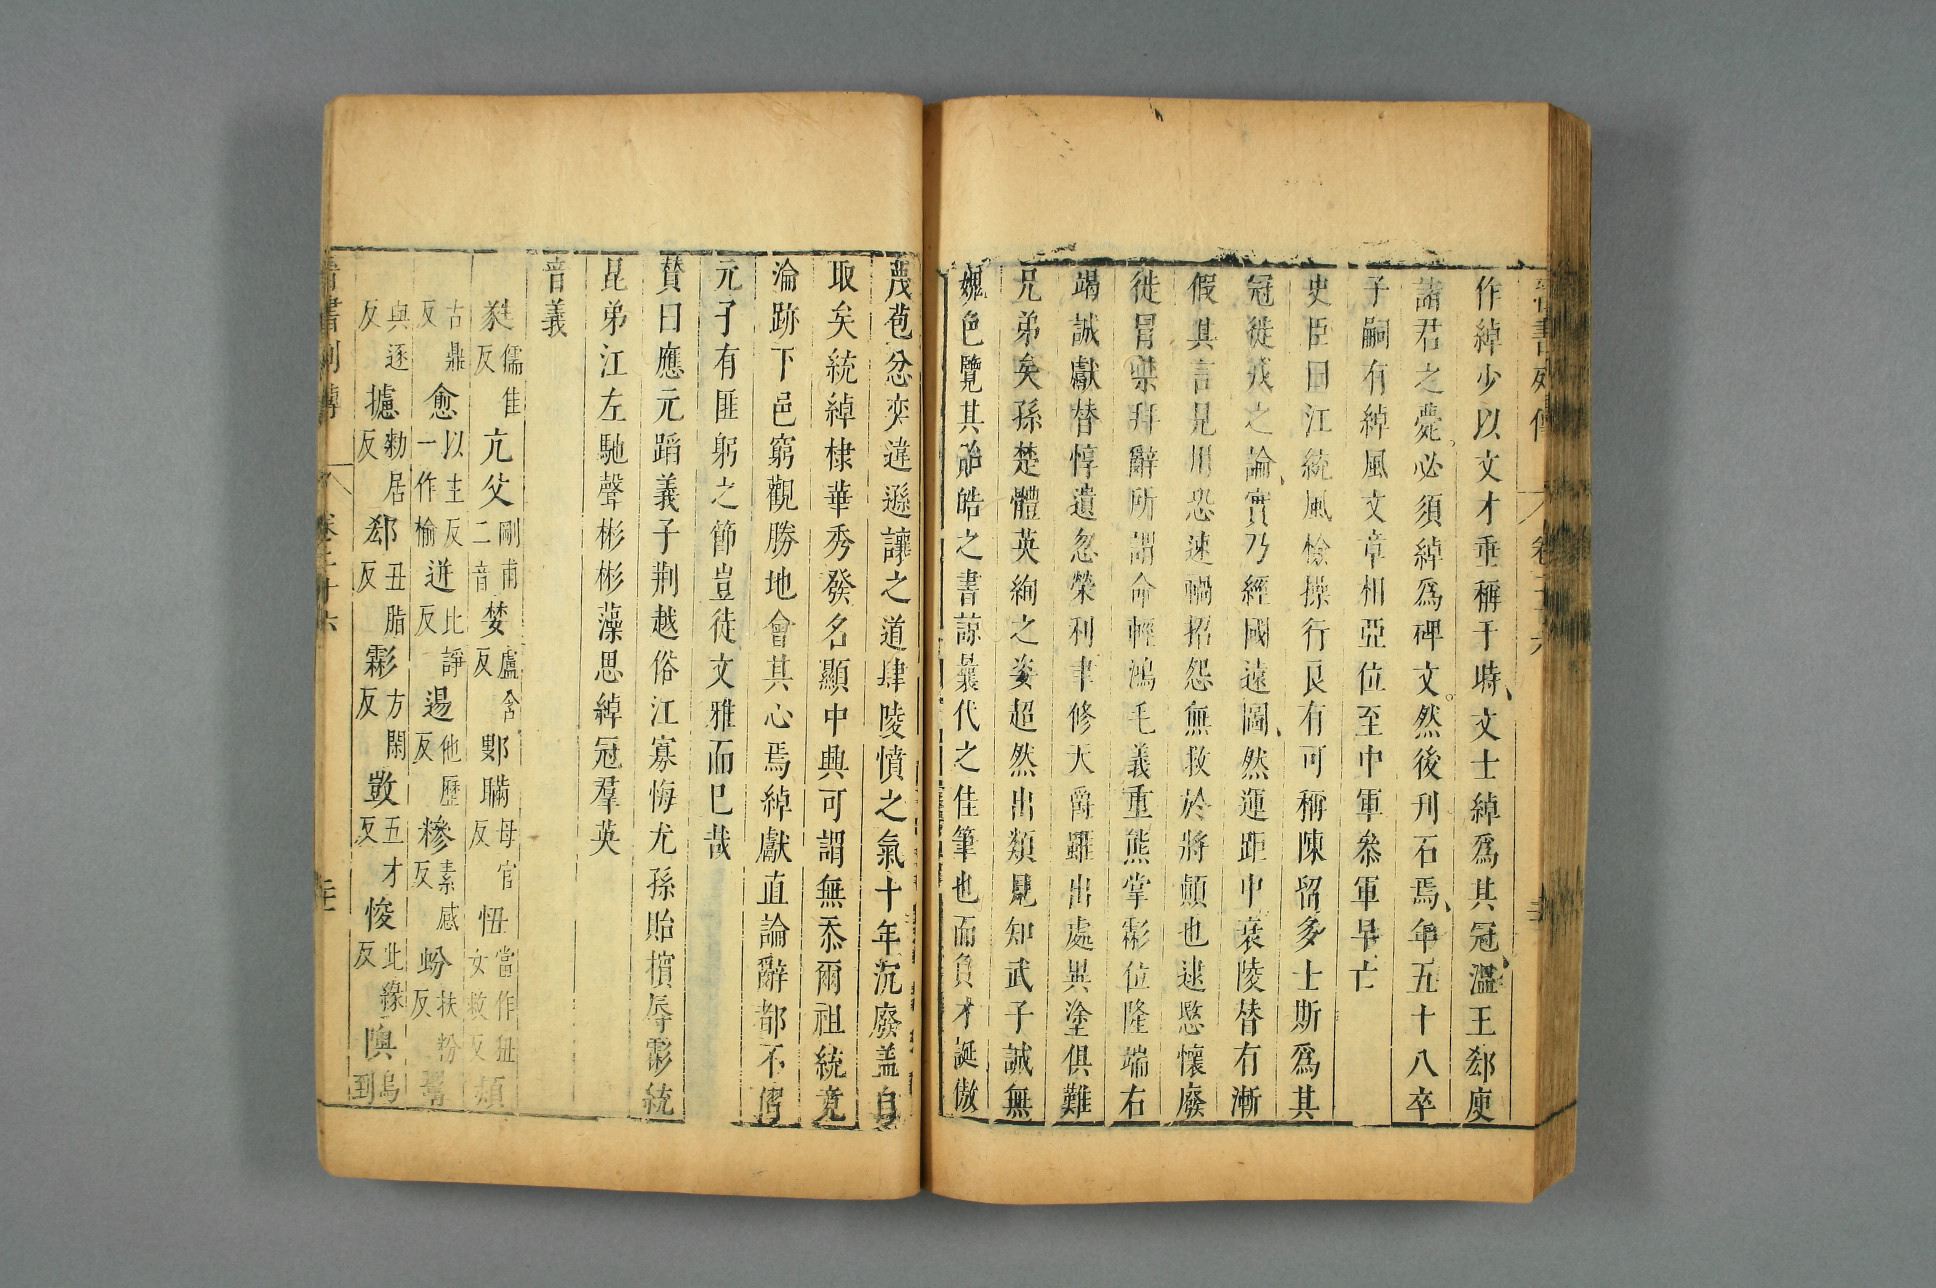 作綽少以文才垂稱于時文士綽爲其冠溫王郄庾
諸君之薨必須綽爲碑文然後刊石焉年五十八卒
子嗣有綽風文章相亞位至中軍叅軍早亡
史臣曰江統風檢操行良有可稱陳留多士斯爲其
冠徙戎之論實乃經國遠圖然運距中衰陵替有漸
假其言見用恐速禍招怨無救於將顛也逮愍懷廢
徙冒禁拜辭所謂命輕鴻毛義重熊掌虨位隆端右
竭誠獻替惇遺忽榮利聿修天爵雖出處異塗俱難
兄弟矣孫楚體英絢之姿超然出類見知武子誠無
媿色覽其貽皓之書諒曩代之佳筆也而負才誕傲
蔑苞忿奕違遜讓之道肆陵憤之氣十年沉廢盖自
取矣統綽棣華秀發名顯中興可謂無忝爾祖統竟
淪跡下邑窮觀勝地會其心焉綽獻直論辭都不慴
元子有匪躬之節豈徒文雅而巳哉
賛曰應元蹈義子荆越俗江寡悔尤孫貽擯辱虨統
昆弟江左馳聲彬彬藻思綽冠羣英
音義
儒隹反 亢父 剛甫二音 婪 盧含反 鄚 瞞 母官反 忸 當作狃女救反 熲
古鼎反 愈 以主反一作榆 迸 比諍反 逷 他歷反 糝 素感反 蚡 扶粉反
與逐反 攄 勑居反 郄 丑脂反 虨 方閑反 敳 五才反 悛 此緣反 隩 烏到
晉書列傳 卷二十六